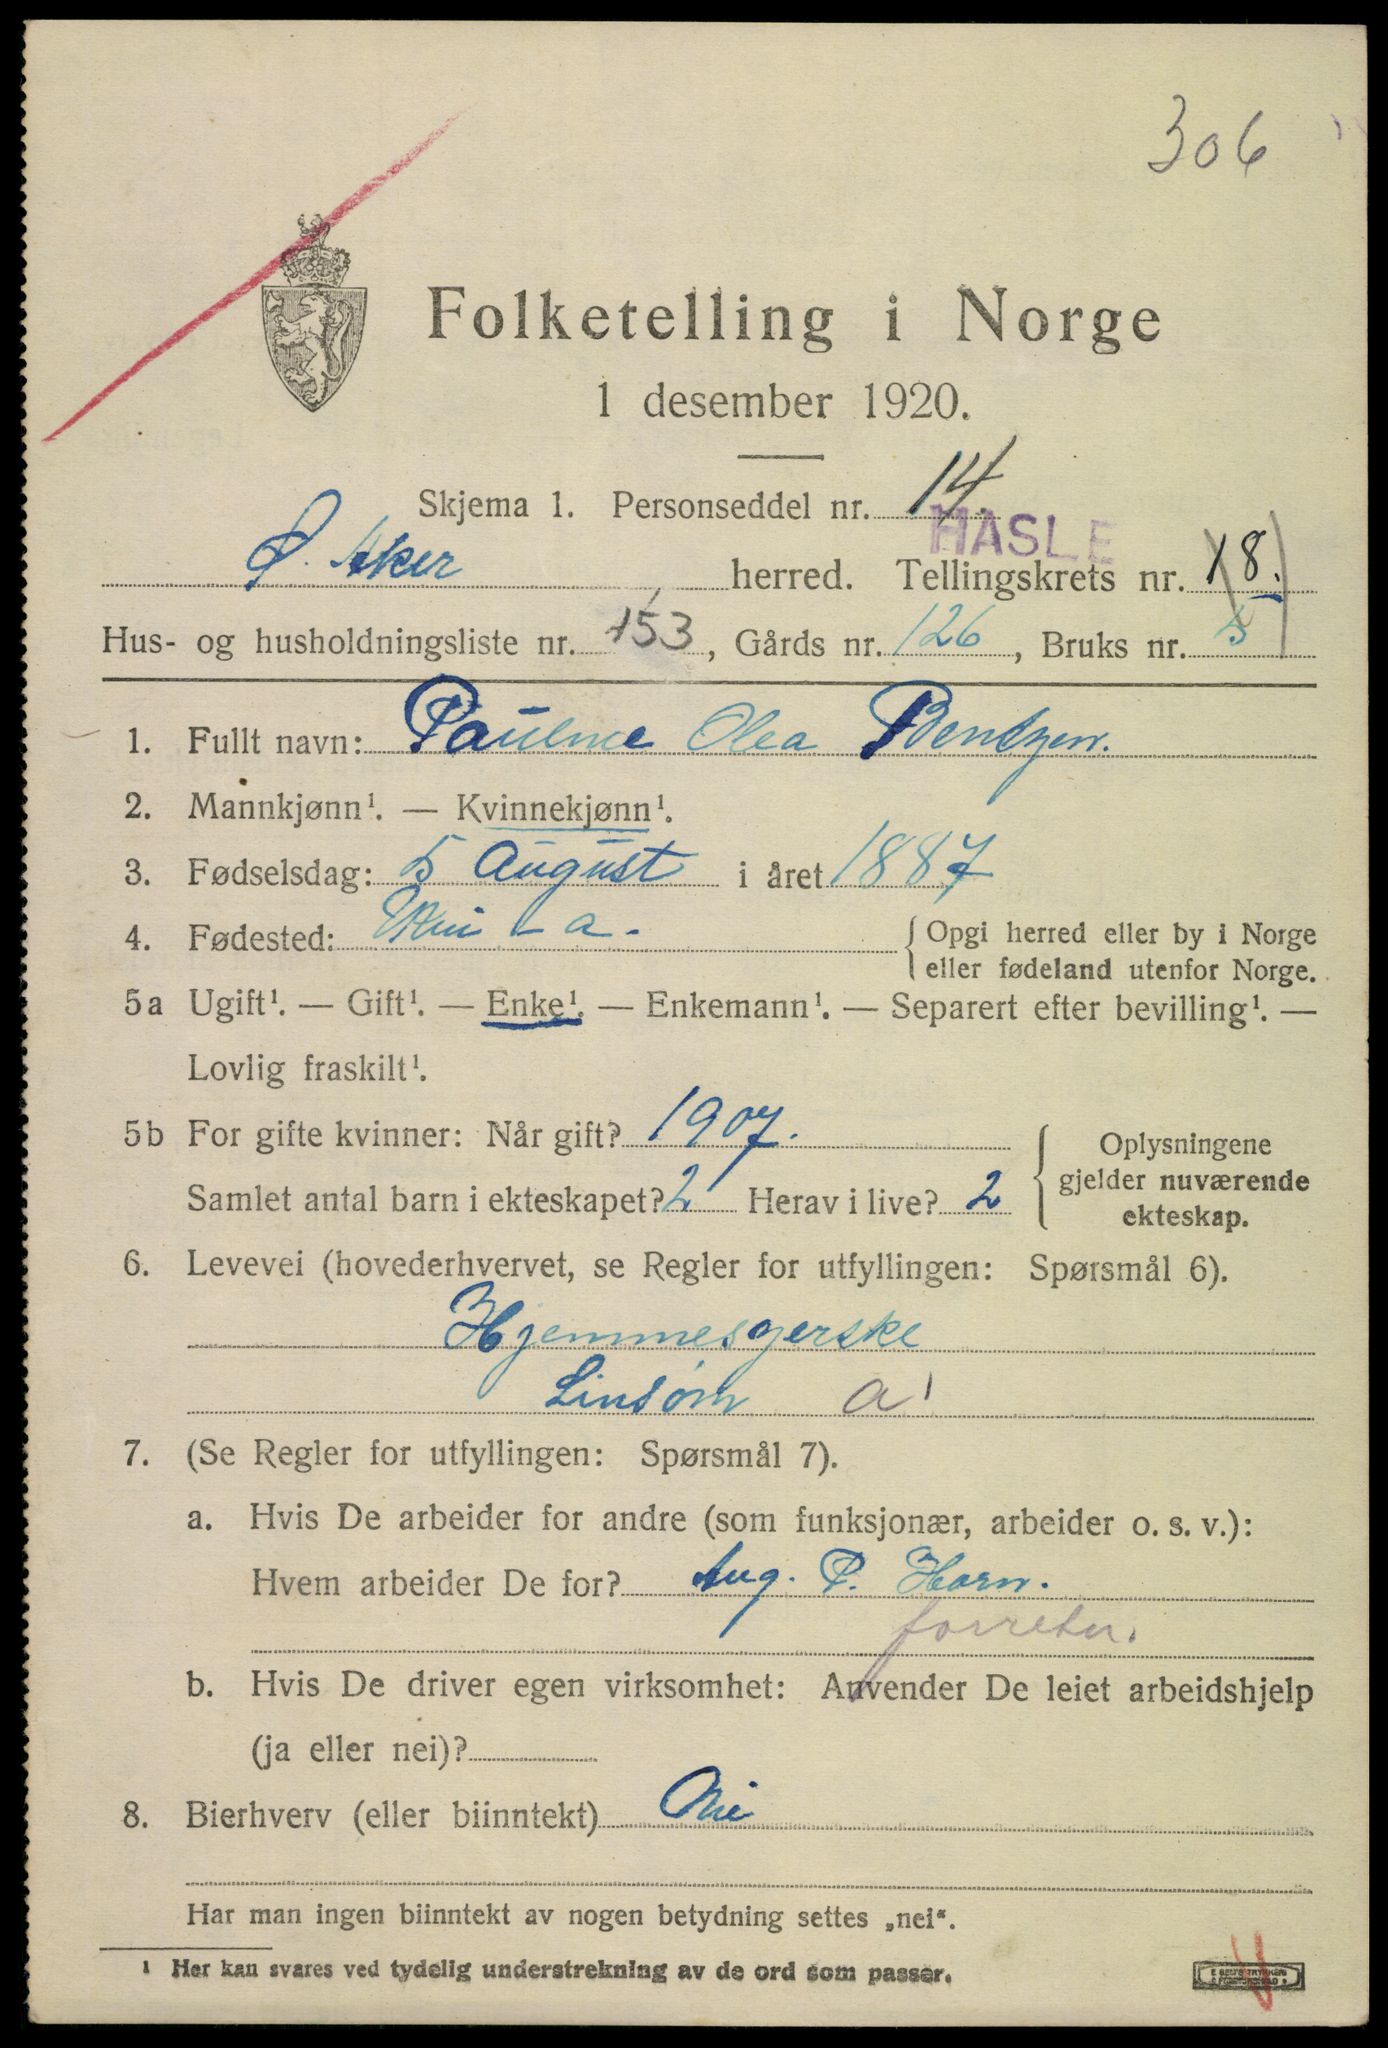 306
Folketelling i Norge
1 desember 1920.
Skjema 1. Personseddel nr. 14.
HASLE
Ø. Aker herred. Tellingskrets nr. 18.
Hus- og husholdningsliste nr. 153, Gårds nr. 126, Bruks nr. 5
1. Fullt navn: Pauline Olea Bentzen.
2. Mannkjønn¹. — Kvinnekjønn¹.
3. Fødselsdag: 5 August i året 1887
4. Fødested: { Opgi herred eller by i Norge
eller fødeland utenfor Norge.
5a Ugift¹. — Gift¹. — Enke¹. — Enkemann¹. — Separert efter bevilling¹. —
Lovlig fraskilt¹.
5b For gifte kvinner: Når gift? 1907.
Samlet antal barn i ekteskapet? 2 Herav i live? 2
{ Oplysningene
gjelder nuværende
ekteskap.
6. Levevei (hovederhvervet, se Regler for utfyllingen: Spørsmål 6).
Hjemmesyerske
Linsøm a'
7. (Se Regler for utfyllingen: Spørsmål 7).
a. Hvis De arbeider for andre (som funksjonær, arbeider o. s. v.):
Hvem arbeider De for? Aug. P. Horn.
forretn.
b. Hvis De driver egen virksomhet: Anvender De leiet arbeidshjelp
(ja eller nei)?
8. Bierhverv (eller biinntekt) Nei
Har man ingen biinntekt av nogen betydning settes „nei“.
¹ Her kan svares ved tydelig understrekning av de ord som passer.